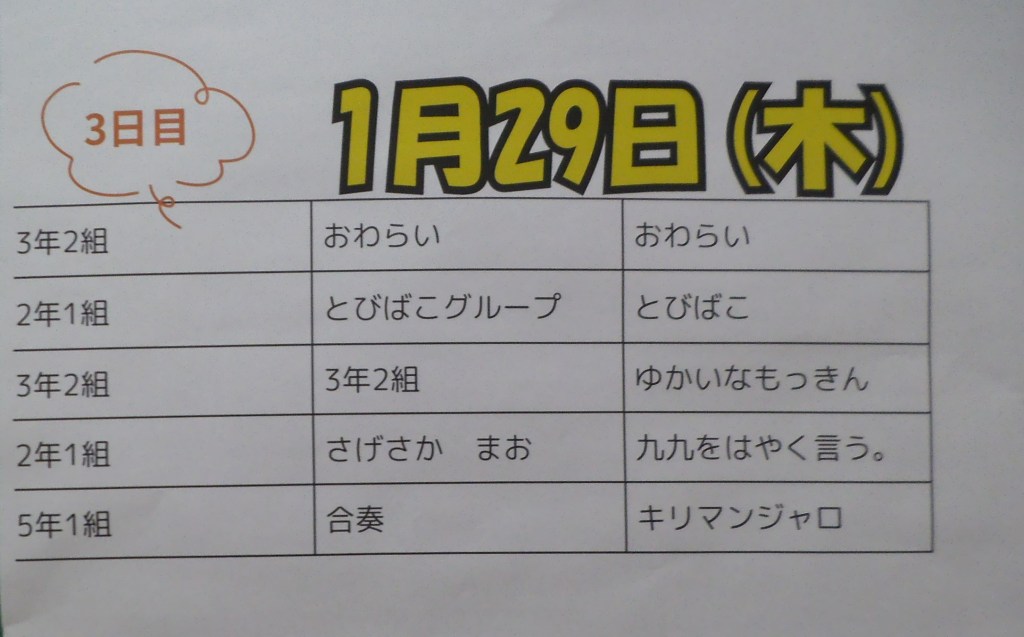 3日目
1月29日(木)
3年2組 おわらい おわらい
2年1組 とびばこグループ とびばこ
3年2組 3年2組 ゆかいなもっきん
2年1組 さげさか　まお 九九をはやく言う。
5年1組 合奏 キリマンジャロ